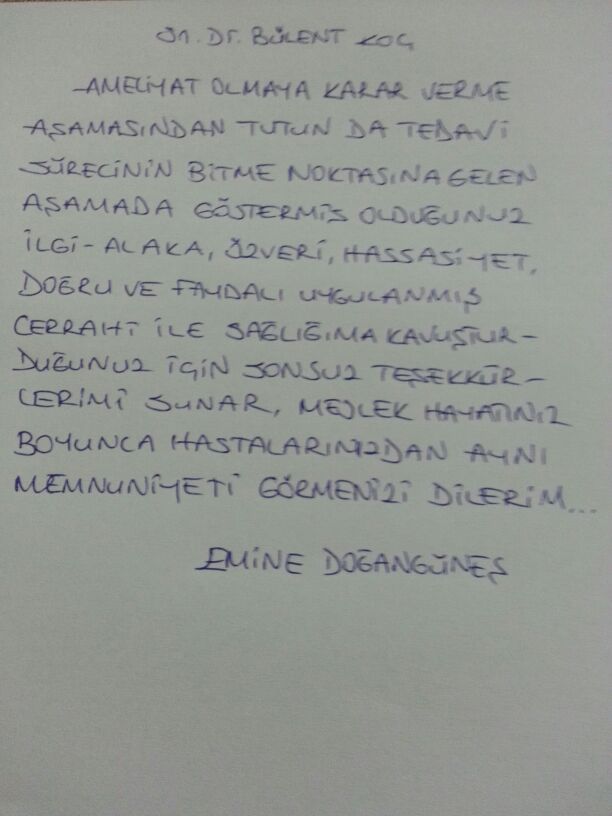 Sn. Dr. BÜLENT KOÇ
AMELİYAT OLMAYA KARAR VERME
AŞAMASINDAN TUTUN DA TEDAVİ
SÜRECİNİN BİTME NOKTASINA GELEN
AŞAMADA GÖSTERMİŞ OLDUĞUNUZ
İLGİ-ALAKA, ÖZVERİ, HASSASİYET,
DOĞRU VE FAYDALI UYGULANMIŞ
CERRAHİ İLE SAĞLIĞIMA KAVUŞTUR-
DUĞUNUZ İÇİN SONSUZ TEŞEKKÜR-
LERİMİ SUNAR, MESLEK HAYATINIZ
BOYUNCA HASTALARINIZDAN AYNI
MEMNUNİYETİ GÖRMENİZİ DİLERİM...
EMİNE DOĞANGÜNEŞ